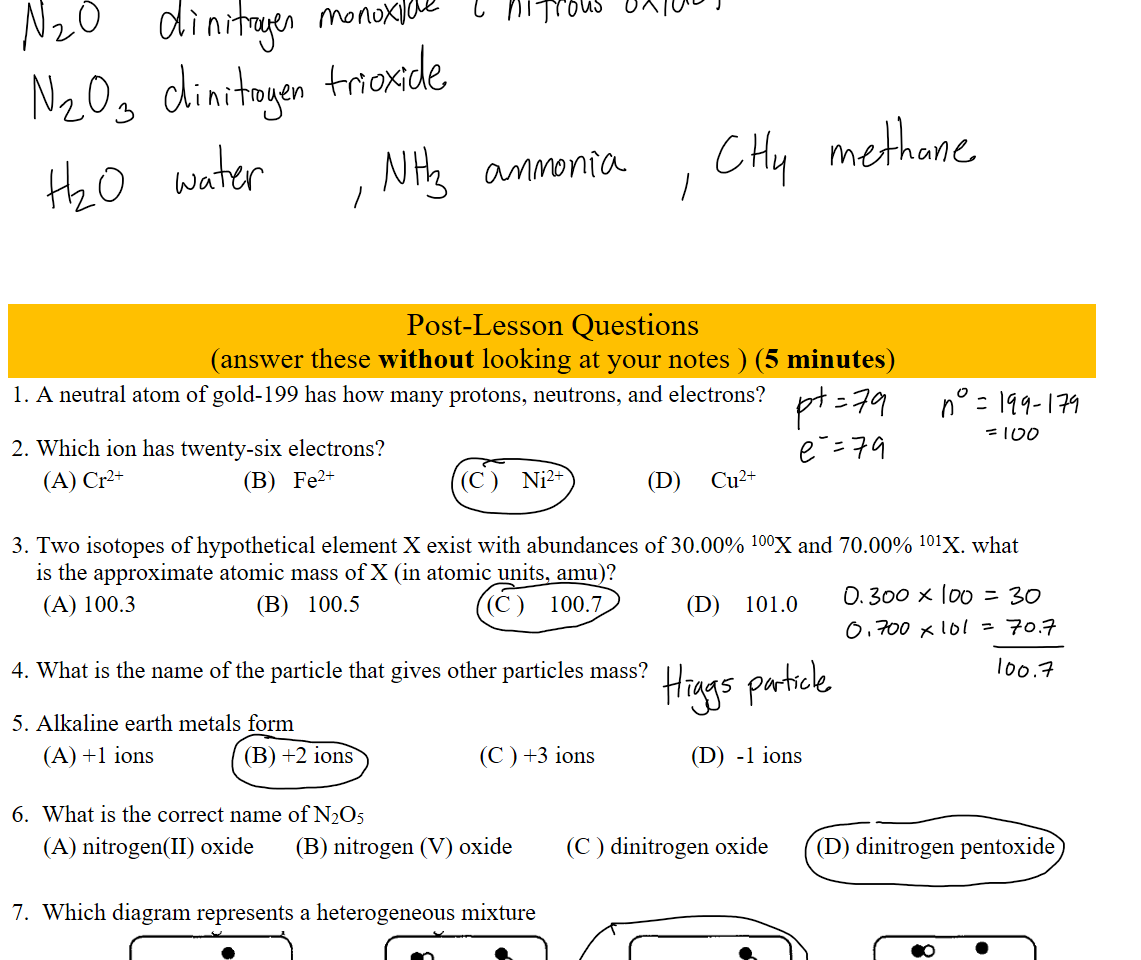 N₂O dinitrogen monoxide ( nitrous oxide)
N₂O₃ dinitrogen trioxide
H₂O water , NH₃ ammonia , CH₄ methane
Post-Lesson Questions
(answer these without looking at your notes ) (5 minutes)
1. A neutral atom of gold-199 has how many protons, neutrons, and electrons? p⁺ = 79 n⁰ = 199-179
e⁻ = 79 = 100
2. Which ion has twenty-six electrons?
(A) Cr²⁺ (B) Fe²⁺ (C ) Ni²⁺ (D) Cu²⁺
3. Two isotopes of hypothetical element X exist with abundances of 30.00% ¹⁰⁰X and 70.00% ¹⁰¹X. what
is the approximate atomic mass of X (in atomic units, amu)?
(A) 100.3 (B) 100.5 (C ) 100.7 (D) 101.0 0.300 × 100 = 30
0.700 × 101 = 70.7
100.7
4. What is the name of the particle that gives other particles mass? Higgs particle
5. Alkaline earth metals form
(A) +1 ions (B) +2 ions (C ) +3 ions (D) -1 ions
6. What is the correct name of N₂O₅
(A) nitrogen(II) oxide (B) nitrogen (V) oxide (C ) dinitrogen oxide (D) dinitrogen pentoxide
7. Which diagram represents a heterogeneous mixture